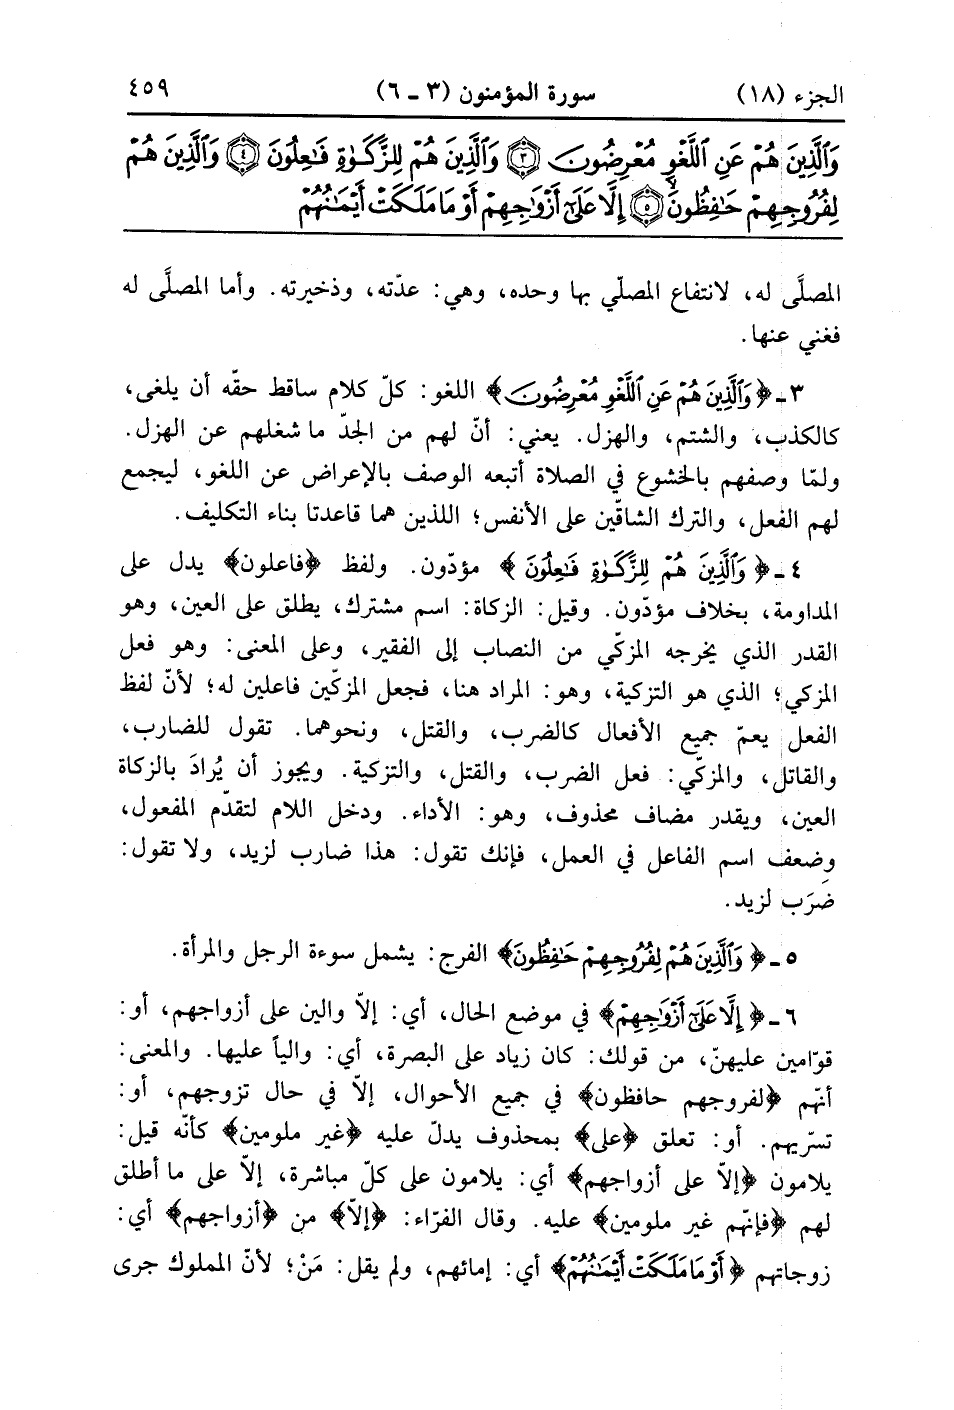 الجزء (١٨) سورة المؤمنون (٣ ـ ٦) ٤٥٩
وَٱلَّذِينَ هُمْ عَنِ ٱللَّغْوِ مُعْرِضُونَ ٣ وَٱلَّذِينَ هُمْ لِلزَّكَوٰةِ فَٰعِلُونَ ٤ وَٱلَّذِينَ هُمْ
لِفُرُوجِهِمْ حَٰفِظُونَ ٥ إِلَّا عَلَىٰٓ أَزْوَٰجِهِمْ أَوْ مَا مَلَكَتْ أَيْمَٰنُهُمْ
المصلَّى له، لانتفاع المصلّي بها وحده، وهي: عدّته، وذخيرته. وأما المصلَّى له
فغني عنها.
٣ ـ ﴿وَٱلَّذِينَ هُمْ عَنِ ٱللَّغْوِ مُعْرِضُونَ﴾ اللغو: كلّ كلام ساقط حقّه أن يلغى،
كالكذب، والشتم، والهزل. يعني: أنّ لهم من الجدّ ما شغلهم عن الهزل.
ولمّا وصفهم بالخشوع في الصلاة أتبعه الوصف بالإعراض عن اللغو، ليجمع
لهم الفعل، والترك الشاقّين على الأنفس؛ اللذين هما قاعدتا بناء التكليف.
٤ ـ ﴿وَٱلَّذِينَ هُمْ لِلزَّكَوٰةِ فَٰعِلُونَ﴾ مؤدّون. ولفظ ﴿فاعلون﴾ يدل على
المداومة، بخلاف مؤدّون. وقيل: الزكاة: اسم مشترك، يطلق على العين، وهو
القدر الذي يخرجه المزكّي من النصاب إلى الفقير، وعلى المعنى: وهو فعل
المزكي؛ الذي هو التزكية، وهو: المراد هنا، فجعل المزكّين فاعلين له؛ لأنّ لفظ
الفعل يعمّ جميع الأفعال كالضرب، والقتل، ونحوهما. تقول للضارب،
والقاتل، والمزكّي: فعل الضرب، والقتل، والتزكية. ويجوز أن يُرادَ بالزكاة
العين، ويقدر مضاف محذوف، وهو: الأداء. ودخل اللام لتقدّم المفعول،
وضعف اسم الفاعل في العمل، فإنك تقول: هذا ضارب لزيد، ولا تقول:
ضَرَب لزيد.
٥ ـ ﴿وَٱلَّذِينَ هُمْ لِفُرُوجِهِمْ حَٰفِظُونَ﴾ الفرج: يشمل سوءة الرجل والمرأة.
٦ ـ ﴿إِلَّا عَلَىٰٓ أَزْوَٰجِهِمْ﴾ في موضع الحال، أي: إلاّ والين على أزواجهم، أو:
قوّامين عليهنّ، من قولك: كان زياد على البصرة، أي: والياً عليها. والمعنى:
أنّهم ﴿لفروجهم حافظون﴾ في جميع الأحوال، إلاّ في حال تزوجهم، أو:
تسرّيهم. أو: تعلق ﴿على﴾ بمحذوف يدلّ عليه ﴿غير ملومين﴾ كأنّه قيل:
يلامون ﴿إلاّ على أزواجهم﴾ أي: يلامون على كلّ مباشرة، إلاّ على ما أطلق
لهم ﴿فإنّهم غير ملومين﴾ عليه. وقال الفرّاء: ﴿إلاّ﴾ من ﴿أزواجهم﴾ أي:
زوجاتهم ﴿أَوْ مَا مَلَكَتْ أَيْمَٰنُهُمْ﴾ أي: إمائهم، ولم يقل: مَنْ؛ لأنّ المملوك جرى